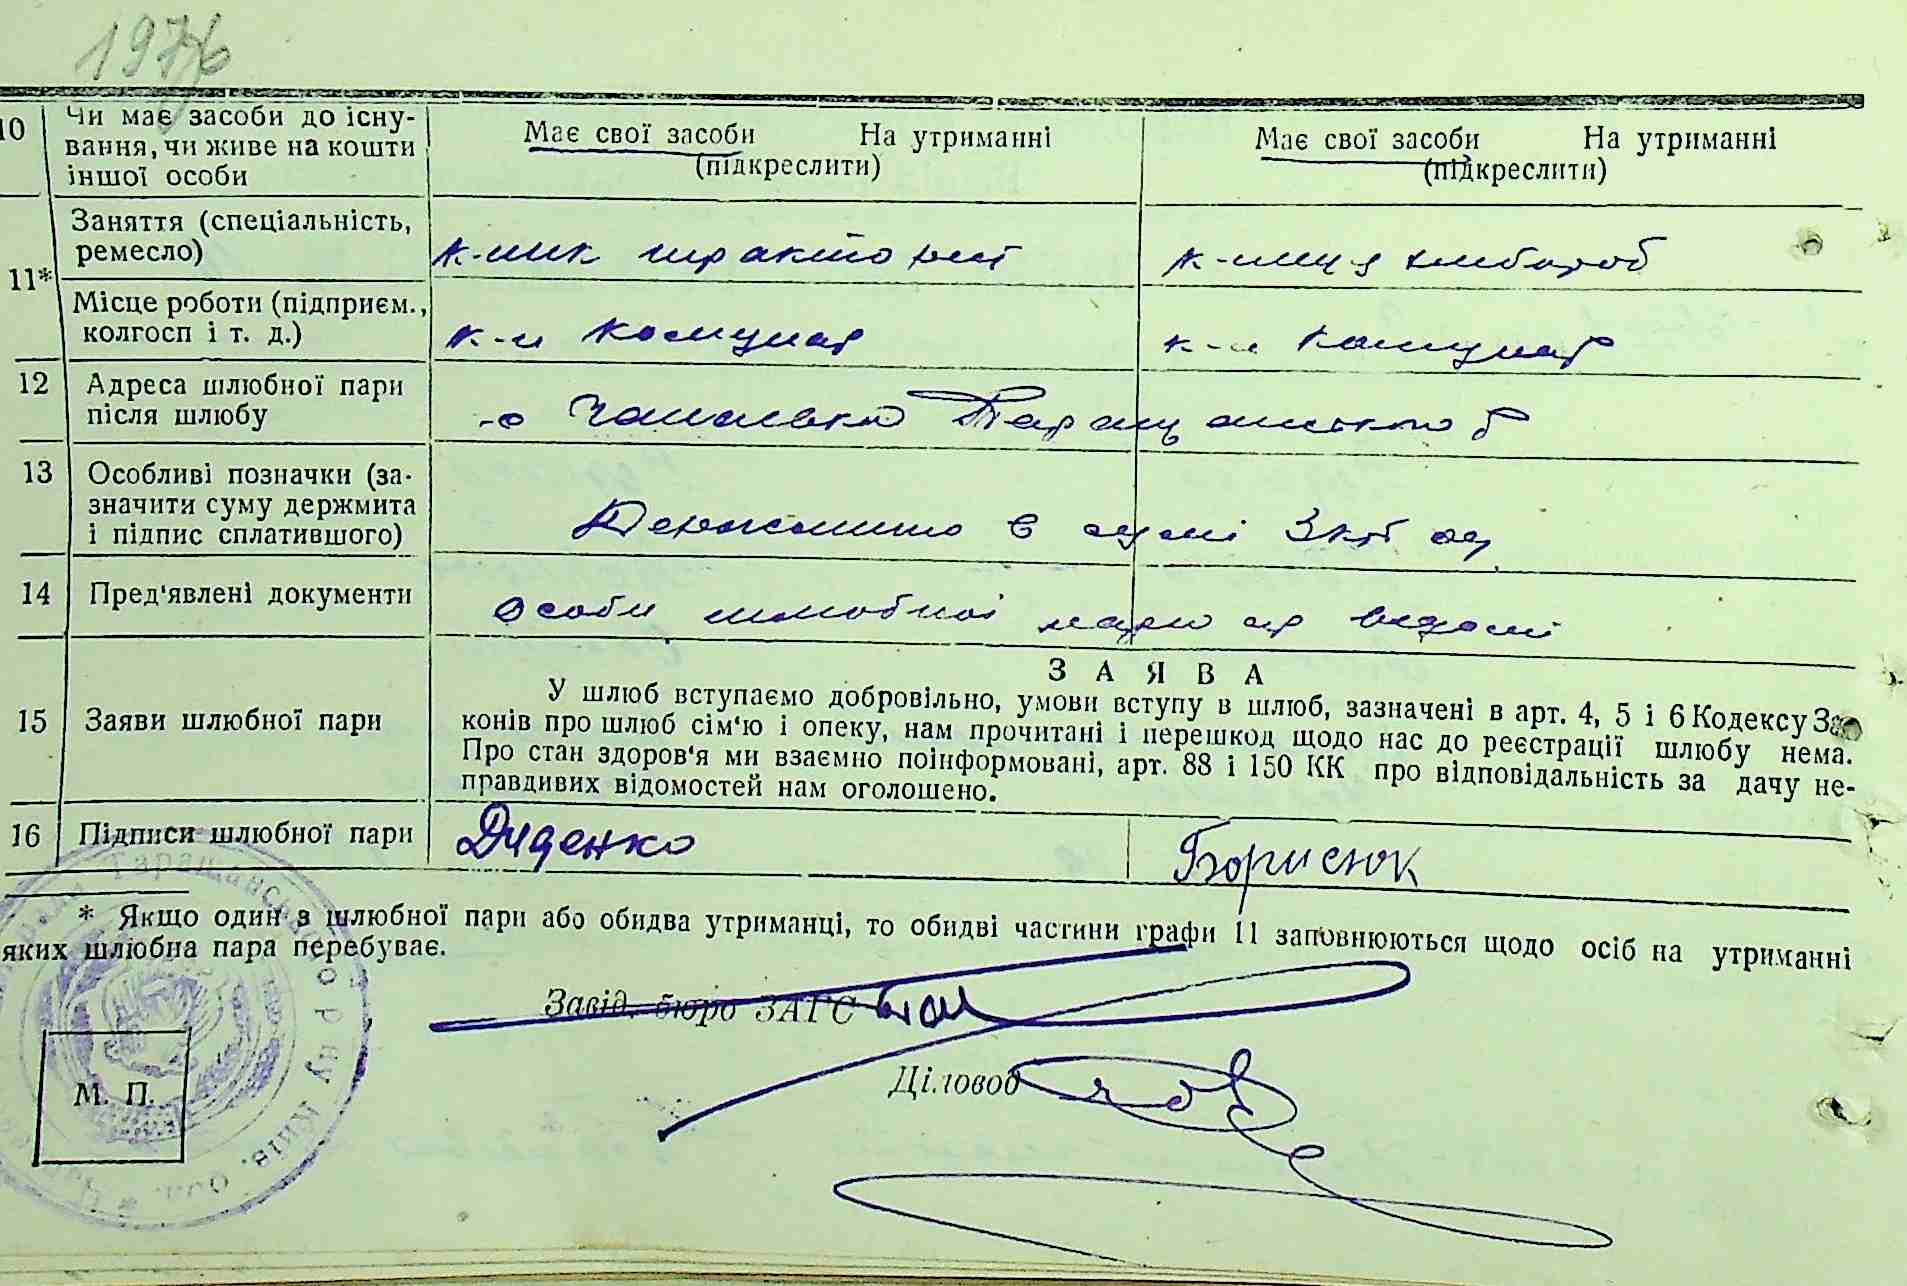 1976
10 Чи має засоби до існу-
вання, чи живе на кошти
іншої особи
Має свої засоби На утриманні
(підкреслити)
Має свої засоби На утриманні
(підкреслити)
11*
Заняття (спеціальність,
ремесло)
к-ник тракторист
к-ниця хлібороб
Місце роботи (підприєм.,
колгосп і т. д.)
к-п Комунар
к-п Комунар
12 Адреса шлюбної пари
після шлюбу
с Чапаєвка Таращанського р
13 Особливі позначки (за-
значити суму держмита
і підпис сплатившого)
Держмито в сумі 3крб
14 Пред'явлені документи
Особи шлюбної пари відомі
15 Заяви шлюбної пари
ЗАЯВА
У шлюб вступаємо добровільно, умови вступу в шлюб, зазначені в арт. 4, 5 і 6 Кодексу За-
конів про шлюб сім'ю і опеку, нам прочитані і перешкод щодо нас до реєстрації шлюбу нема.
Про стан здоров'я ми взаємно поінформовані, арт. 88 і 150 КК про відповідальність за дачу не-
правдивих відомостей нам оголошено.
16 Підписи шлюбної пари
Диденко
Борисюк
* Якщо один з шлюбної пари або обидва утриманці, то обидві частини графи 11 заповнюються щодо осіб на утриманні
яких шлюбна пара перебуває.
Завід. бюро ЗАГС
Діловод
М. П.
Таращанського р-ну Київ. обл. *